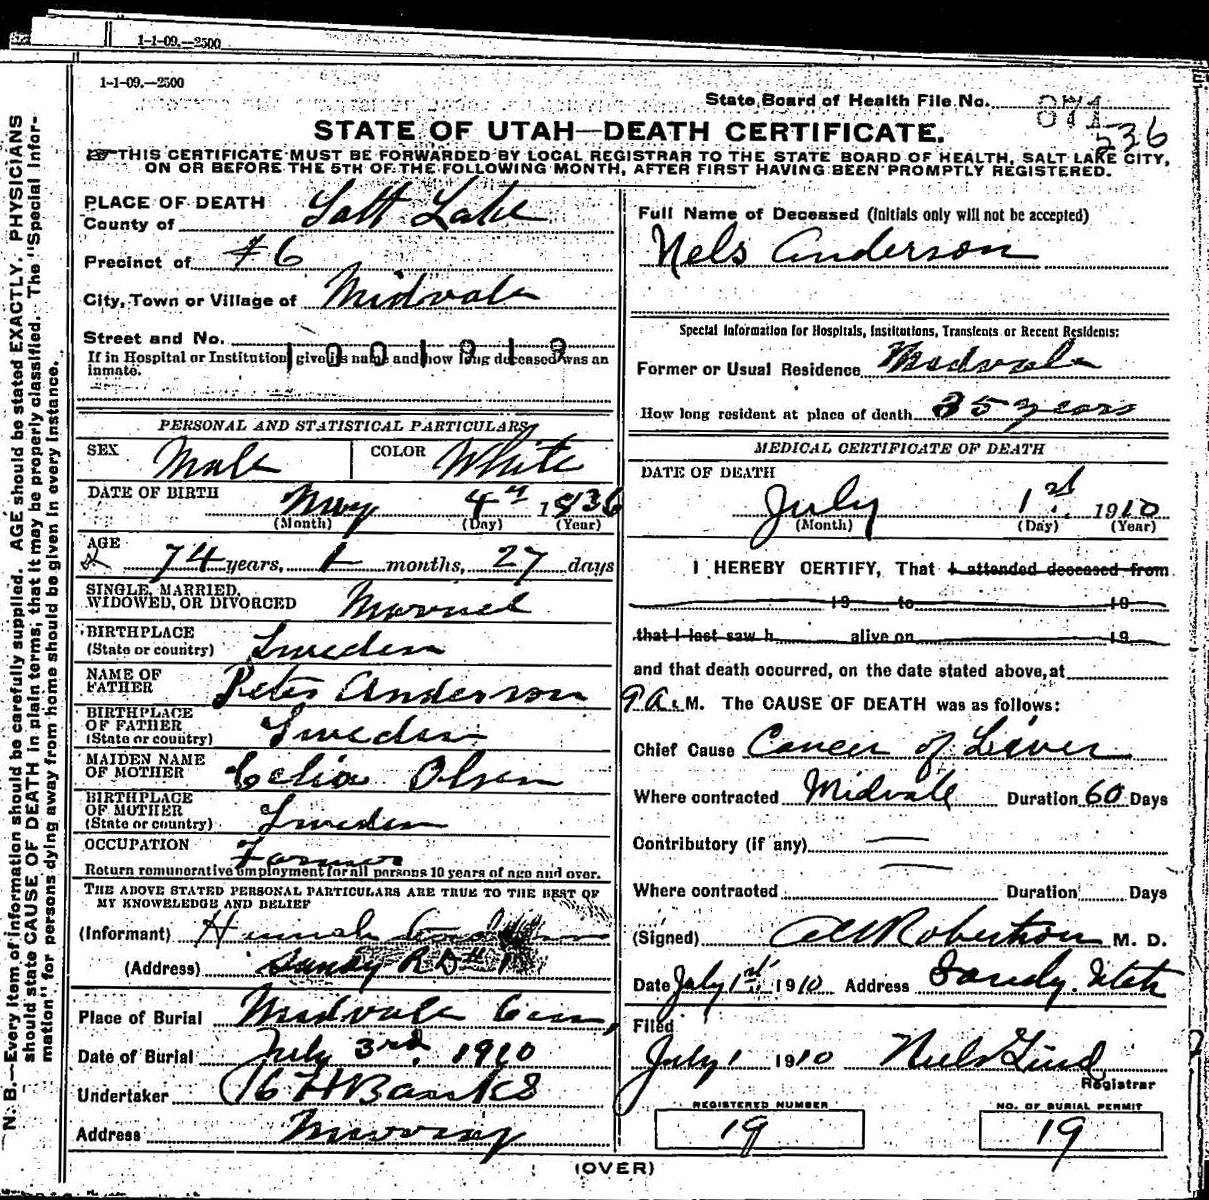 1-1-09.—2500
1-1-09.—2500
State Board of Health File No. 871
236
STATE OF UTAH—DEATH CERTIFICATE.
THIS CERTIFICATE MUST BE FORWARDED BY LOCAL REGISTRAR TO THE STATE BOARD OF HEALTH, SALT LAKE CITY,
ON OR BEFORE THE 5TH OF THE FOLLOWING MONTH, AFTER FIRST HAVING BEEN PROMPTLY REGISTERED.
N. B.—Every item of information should be carefully supplied. AGE should be stated EXACTLY. PHYSICIANS
should state CAUSE OF DEATH in plain terms, that it may be properly classified. The "Special Infor-
mation" for persons dying away from home should be given in every instance.
PLACE OF DEATH
County of Salt Lake
Precinct of #6
City, Town or Village of Midvale
Street and No.
1001919
If in Hospital or Institution give its name and how long deceased was an
inmate.
PERSONAL AND STATISTICAL PARTICULARS
SEX Male COLOR White
DATE OF BIRTH May 4th 1836
(Month) (Day) (Year)
AGE
74 years, 1 months, 27 days
SINGLE, MARRIED,
WIDOWED, OR DIVORCED Married
BIRTHPLACE
(State or country) Sweden
NAME OF
FATHER Peter Anderson
BIRTHPLACE
OF FATHER
(State or country) Sweden
MAIDEN NAME
OF MOTHER Celia Olsen
BIRTHPLACE
OF MOTHER
(State or country) Sweden
OCCUPATION Farmer
Return remunerative employment for all persons 10 years of age and over.
THE ABOVE STATED PERSONAL PARTICULARS ARE TRUE TO THE BEST OF
MY KNOWLEDGE AND BELIEF
(Informant) Hannah
(Address) Sandy R D # 1
Place of Burial Midvale Cem,
Date of Burial July 3rd, 1910
Undertaker
Address Murray
Full Name of Deceased (Initials only will not be accepted)
Nels Anderson
Special Information for Hospitals, Institutions, Transients or Recent Residents:
Former or Usual Residence Midvale
How long resident at place of death 35 years
MEDICAL CERTIFICATE OF DEATH
DATE OF DEATH
July 1st 1910
(Month) (Day) (Year)
I HEREBY CERTIFY, That I attended deceased from
19 to 19
that I last saw h alive on 19
and that death occurred, on the date stated above, at
9 A. M. The CAUSE OF DEATH was as follows:
Chief Cause Cancer of Liver
Where contracted Midvale Duration 60 Days
Contributory (if any) —
Where contracted Duration Days
(Signed) Robertson M. D.
Date July 1st 1910 Address Sandy. Utah
Filed
July 1 1910 Niels Lind
Registrar
REGISTERED NUMBER
19
NO. OF BURIAL PERMIT
19
(OVER)